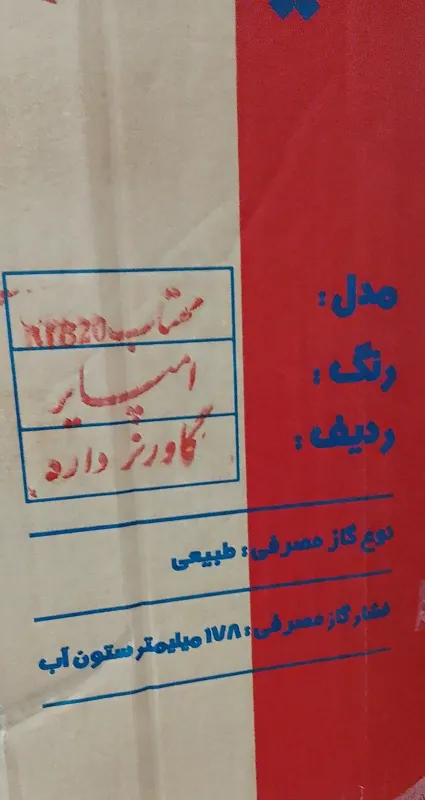 مدل: مهتاب RTB20
رنگ: امپایر
ردیف: گاورنر داره
نوع گاز مصرفی: طبیعی
فشار گاز مصرفی: ۱۷۸ میلیمتر ستون آب